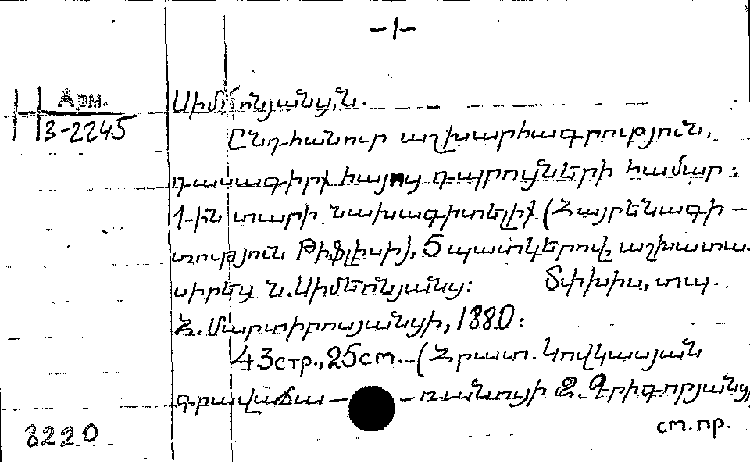 -1-
Арм.
3-2245
Սիմեոնյանց, Ն.
Ընդհանուր աշխարհագրություն,
դասագիրք հայոց դպրոցների համար:
1-ին տարի նախագիտելիք (Հայրենագի-
տություն Թիֆլիսի), 5 պատկերով, աշխատա-
սիրեց Ն. Սիմեոնյանց: Տփխիս, տպ.
Հ. Մարտիրոսյանցի, 1880:
43стр., 25см. (Հրատ. Կովկասյան
գրավաճառանոցի Զ. Գրիգորյանց)
8220
см.пр.